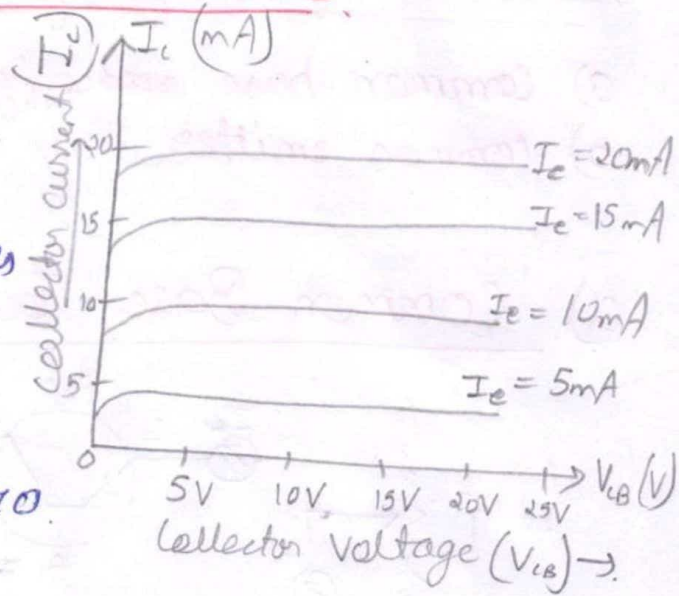 I_c (mA)
Collector current (I_c)
20
15
10
5
0
I_e = 20mA
I_e = 15mA
I_e = 10mA
I_e = 5mA
5V 10V 15V 20V 25V
V_CB (V)
Collector voltage (V_CB) →
s
10